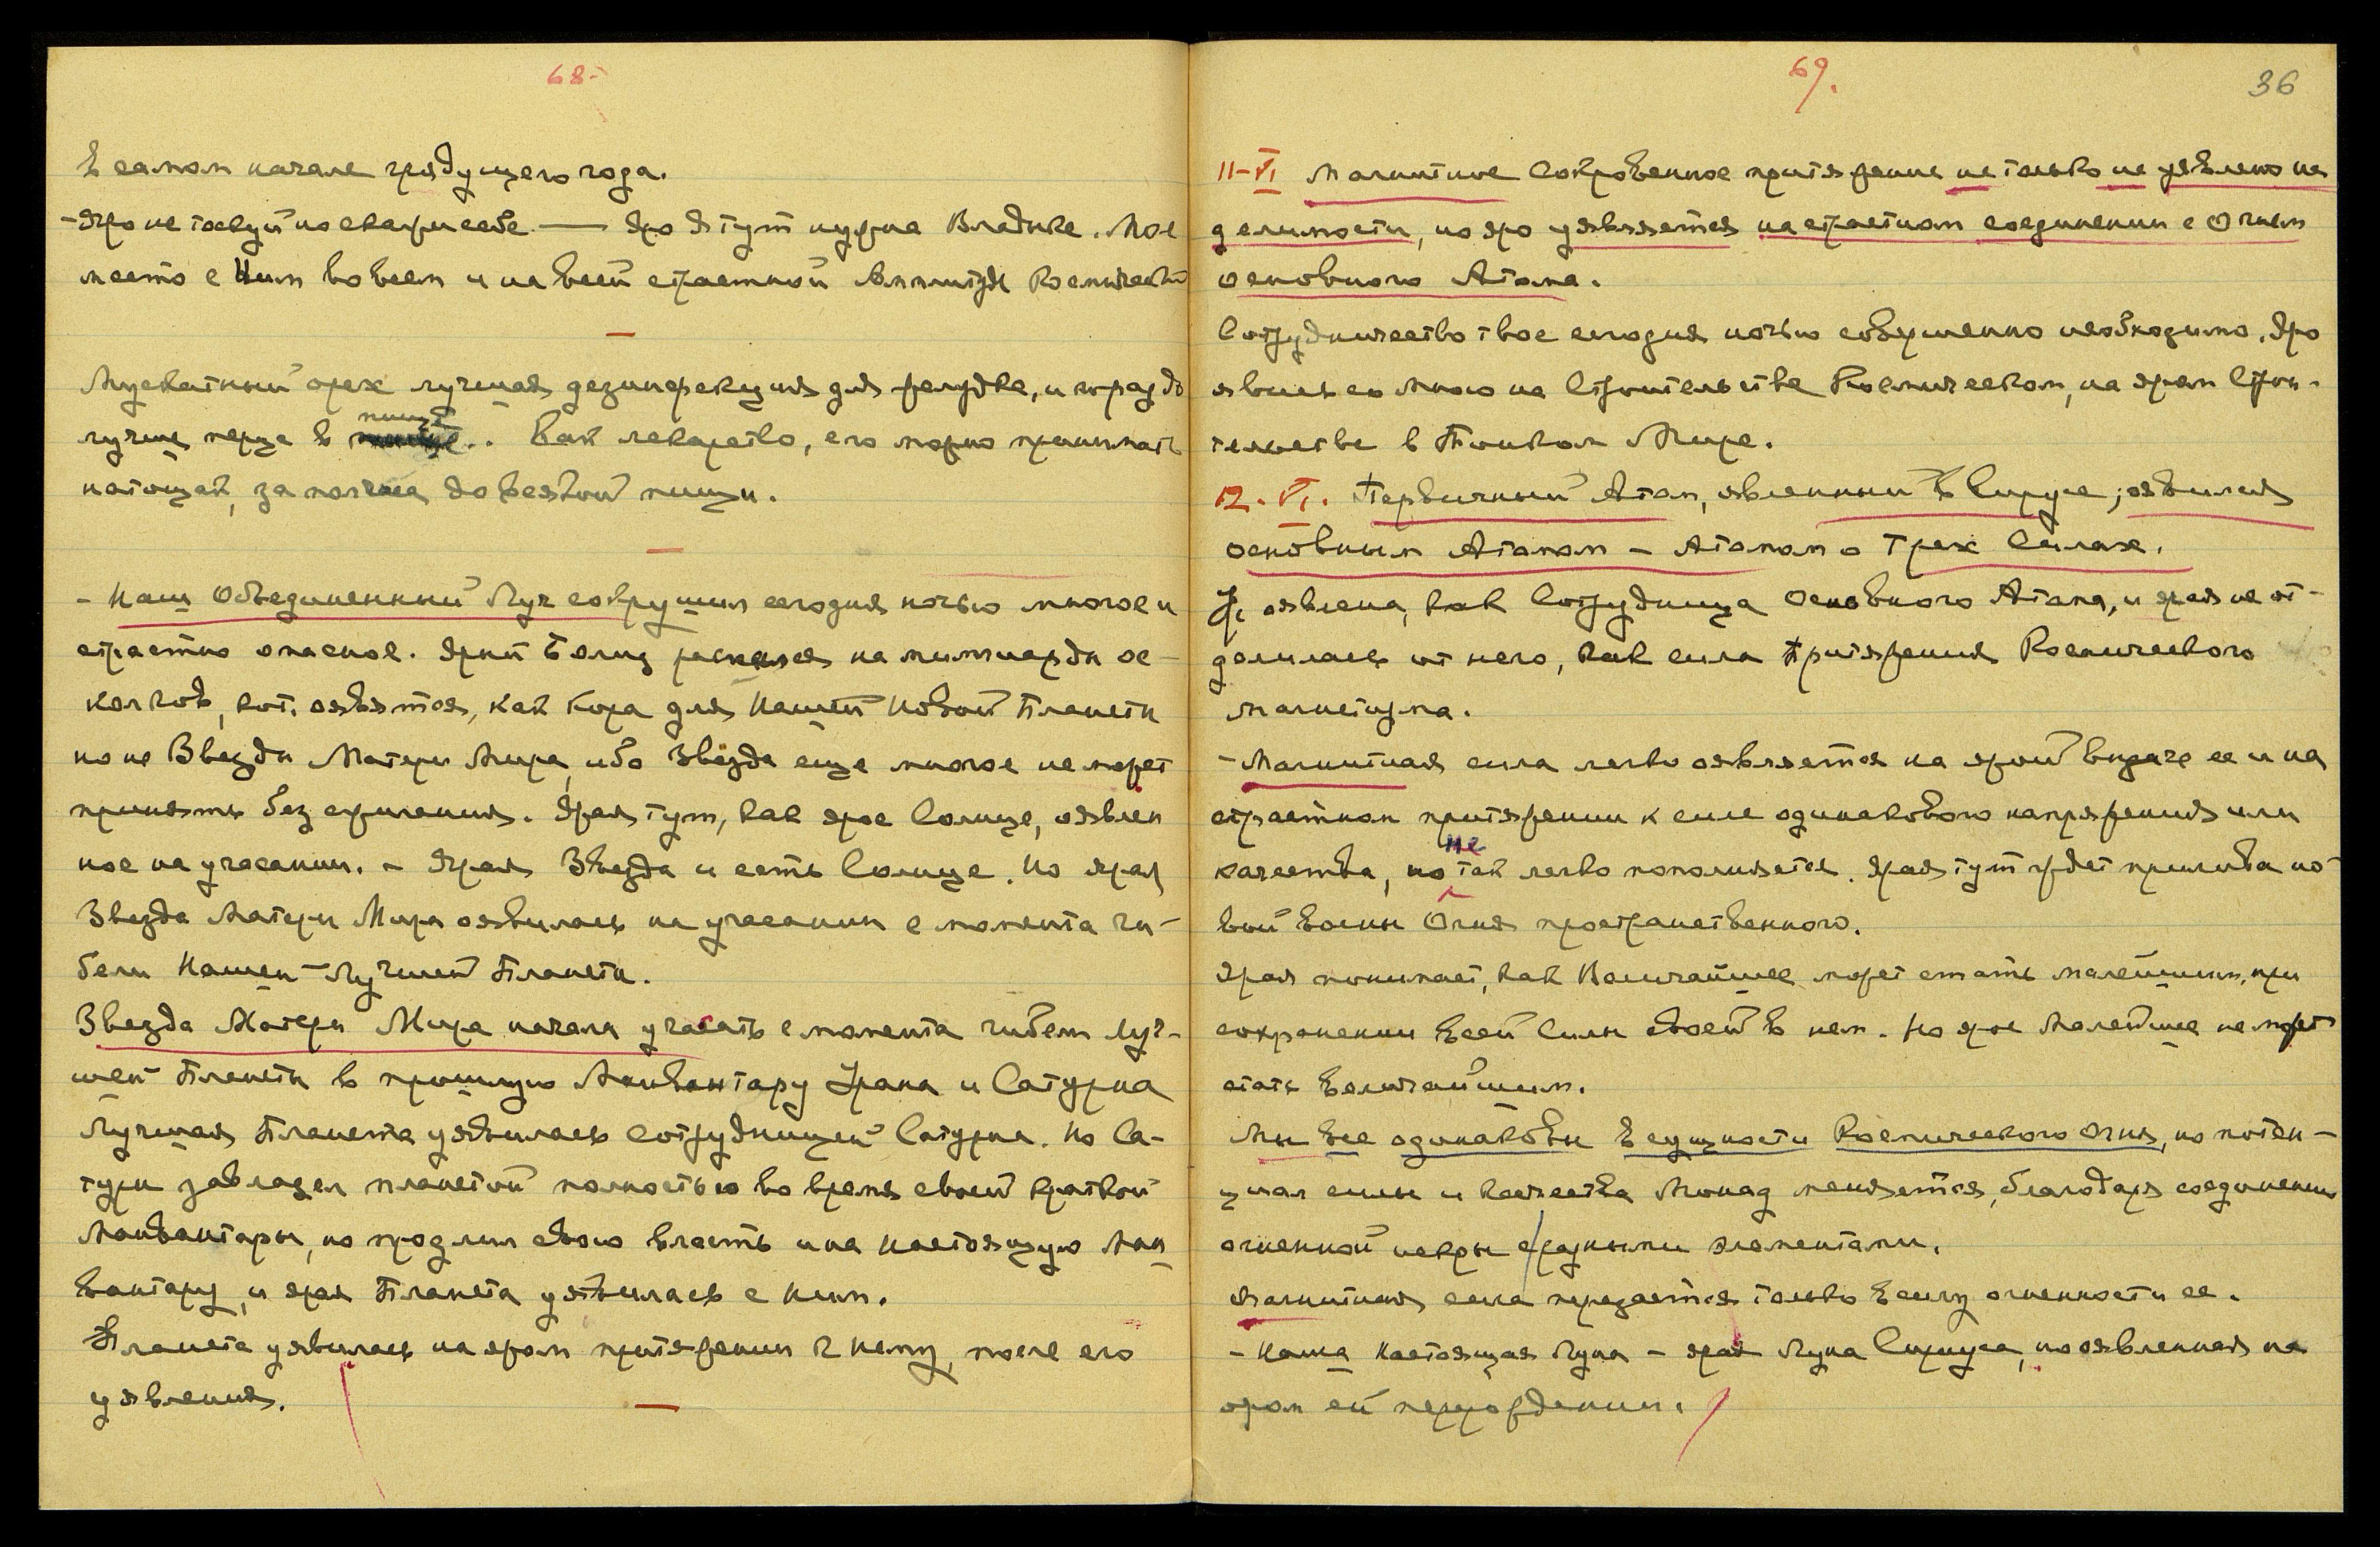 68-
в самом начале грядущего года.
- Яро не тоскуй но скажи себе — Яро Я тут нужна Владыке. Мое
место с Ним во всем и на всей страстной Амплитуде Космической
Мускатный орех лучшая дезинфекция для желудка, и гораздо
лучше перца в пище.. Как лекарство, его можно принимать
натощак, за полчаса до всякой пищи.
- Наш Объединенный Луч сокрушил сегодня ночью многое и
страстно опасное. Ярый Болид распался на миллиарды ос-
колков, кот. оявятся, как Кора для Нашей Новой Планеты
но не Звезды Матери Мира, ибо Звезда еще многое не может
принять без сжигания. Ярая тут, как ярое Солнце, оявлен
ное на угасании. - Ярая Звезда и есть Солнце. Но ярая
Звезда Матери Мира оявилась на угасании с момента ги-
бели Нашей - Лучшей Планеты.
Звезда Матери Мира начала угасать с момента гибели Луч-
шей Планеты в прошлую Манвантару Урана и Сатурна
Лучшая Планета уявилась сотрудницей Сатурна. Но Са-
турн завладел планетой полностью во время своей краткой
Манвантары, но продлил свою власть и на настоящую Ман
вантару, и ярая Планета уявилась с Ним.
Планета уявилась на яром притяжении к Нему, после его
уявления.
69.
36
11-VI Магнитное Сокровенное притяжение не только не уявлено на
делимости, но яро уявляется на страстном соединении с Огнем
основного Атома.
Сотрудничество твое сегодня ночью совершенно необходимо. Яро
явись со Мною на Строительстве Космическом, на яром Строи-
тельстве в Тонком Мире.
12. VI. Первичный Атом, явленный в Сириусе, оявился
основным Атомом - Атомом о Трех Силах.
Ур. оявлена, как Сотрудница Основного Атома, и ярая не от-
делилась от него, как сила притяжения Космического
магнетизма.
- Магнитная сила легко оявляется на ярой выдаче ее и на
страстном притяжении к силе одинакового напряжения или
качества, но не так легко пополняется. Ярая тут ждет прилива но
вой волны Огня пространственного.
Ярая понимает, как Величайшее может стать малейшим, при
сохранении всей Силы своей в нем. Но ярое Малейшее не может
стать Величайшим.
Мы все одинаковы в сущности Космического Огня, но потен-
циал силы и качества Монад меняется, благодаря соединению
огненной искры с разными элементами.
Магнитная сила передается только в силу огненности ее.
- Наша настоящая Луна - ярая Луна Сириуса, но оявленная на
яром ей перерождении.